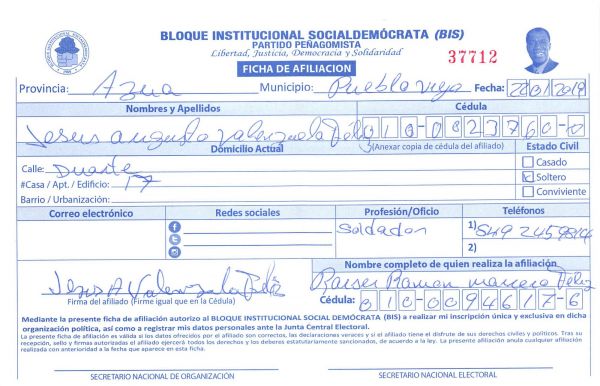 BLOQUE INSTITUCIONAL SOCIALDEMÓCRATA (BIS)
PARTIDO PEÑAGOMISTA
Libertad, Justicia, Democracia y Solidaridad
37712
FICHA DE AFILIACION
Provincia: Azua Municipio: Pueblo Viejo Fecha: 28/01/2019
Nombres y Apellidos Cédula
Jesus augusto Valenzuela Féliz 010-0823760-0
Domicilio Actual (Anexar copia de cédula del afiliado) Estado Civil
Calle: Duarte Casado
#Casa / Apt. / Edificio: 17 Soltero
Barrio / Urbanización: Conviviente
Correo electrónico Redes sociales Profesión/Oficio Teléfonos
Soldador 1)
2)
Nombre completo de quien realiza la afiliación
Jesus A Valenzuela Féliz Ramon Féliz
Firma del afiliado (Firme igual que en la Cédula) Cédula: 010-0094617-6
Mediante la presente ficha de afiliación autorizo al BLOQUE INSTITUCIONAL SOCIAL DEMÓCRATA (BIS) a realizar mi inscripción única y exclusiva en dicha
organización política, así como a registrar mis datos personales ante la Junta Central Electoral.
La presente ficha de afiliación es válida si los datos ofrecidos por el afiliado son correctos, las declaraciones veraces y si el afiliado tiene el disfrute de sus derechos civiles y políticos. Tras su
recepción, sello y firmas autorizadas el afiliado ejercerá todos los derechos y los deberes estatutariamente sancionados, de acuerdo a la ley. La presente afiliación anula cualquier afiliación
realizada con anterioridad a la fecha que aparece en esta ficha.
SECRETARIO NACIONAL DE ORGANIZACIÓN SECRETARIO NACIONAL ELECTORAL